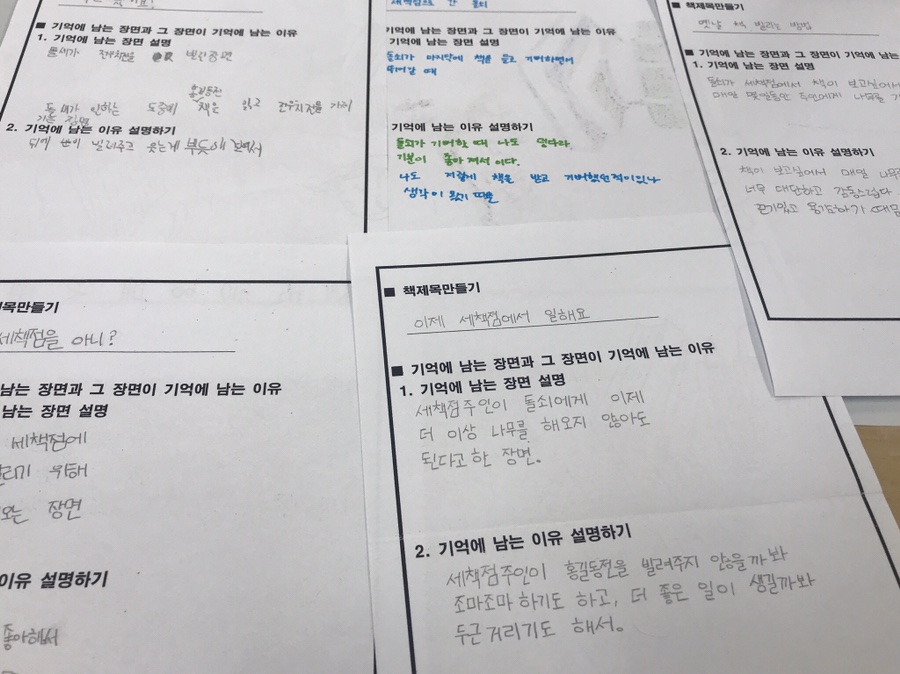 ■ 기억에 남는 장면과 그 장면이 기억에 남는 이유
1. 기억에 남는 장면 설명
돌쇠가 전우치전을 빌린장면
홍길동전
돌쇠가 일하는 도중에 책은 읽고 전우치전을 가지
2. 기억에 남는 이유 설명하기
뒤에 빌려주고 웃는게 뿌듯해 보여서
기억에 남는 장면과 그 장면이 기억에 남는 이유
기억에 남는 장면 설명
돌쇠가 마지막에 책을 들고 기뻐하면서
뛰어갈 때
기억에 남는 이유 설명하기
돌쇠가 기뻐할 때 나도 덩달아
기분이 좋아 져서 이다.
나도 저렇게 책을 받고 기뻐했던적이있나
생각이 났기 때문
■ 책제목만들기
옛날 책 빌리는 방법
■ 기억에 남는 장면과 그 장면이 기억에 남는
1. 기억에 남는 장면 설명
돌쇠가 세책점에서 책이 보고싶어서
매일 주인에게 나무를
2. 기억에 남는 이유 설명하
책이 보고싶어서 매일 나무
너무 대단하고 감동스럽다
끈기있고 용감하기 때문
목만들기
세책점을 아니?
남는 장면과 그 장면이 기억에 남는 이유
남는 장면 설명
세책점에
위해
오는 장면
이유 설명하기
좋아해서
■ 책제목만들기
이제 세책점에서 일해요
■ 기억에 남는 장면과 그 장면이 기억에 남는 이유
1. 기억에 남는 장면 설명
세책점주인이 돌쇠에게 이제
더 이상 나무를 해오지 않아도
된다고 한 장면.
2. 기억에 남는 이유 설명하기
세책점주인이 홍길동전을 빌려주지 않을까봐
조마조마 하기도 하고, 더 좋은 일이 생길까봐
두근거리기도 해서.